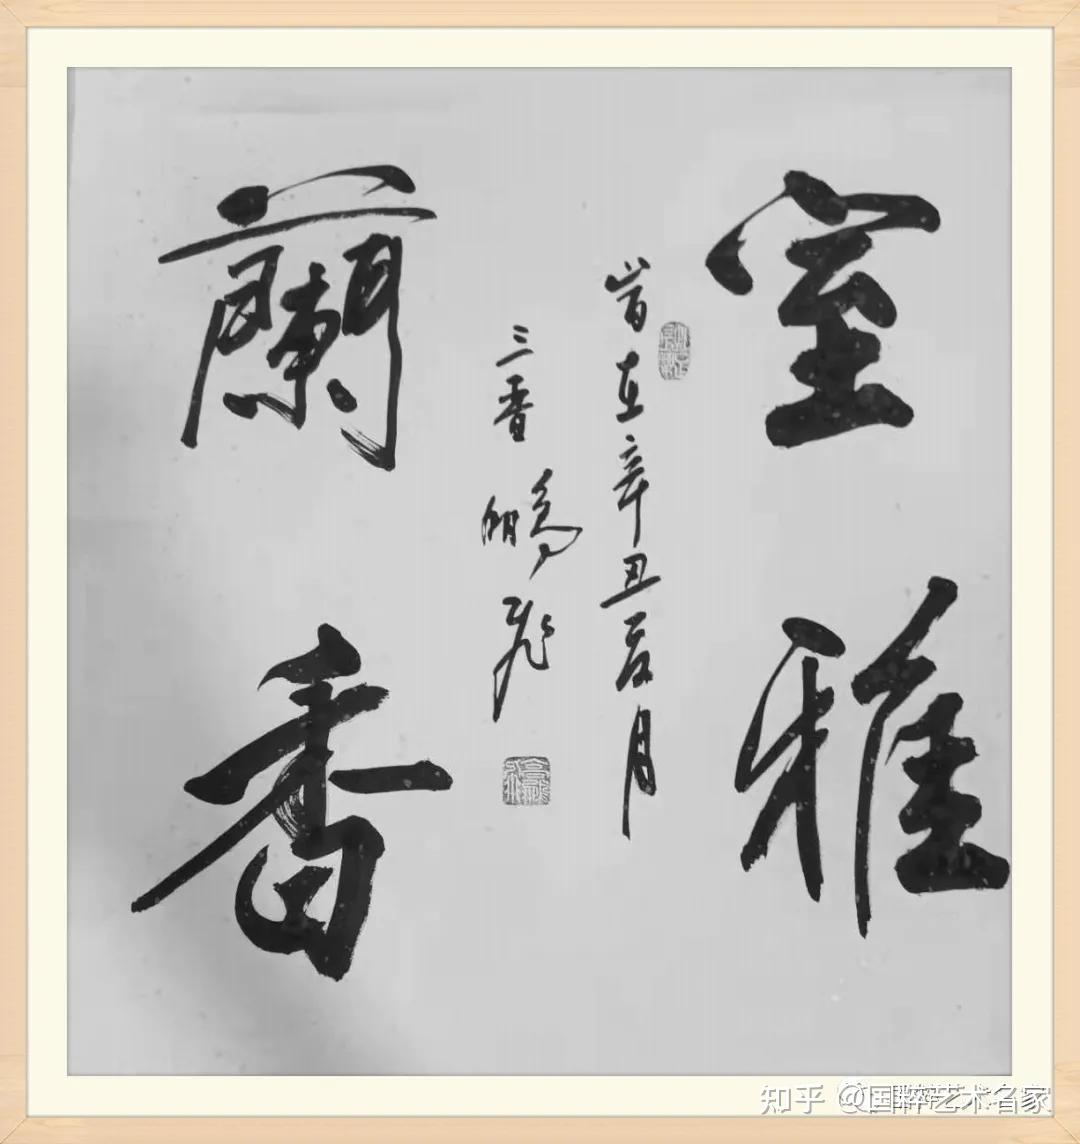 室雅
旹在辛丑夏月
三香鵬飛
蘭香
知乎 @国粹艺术名家